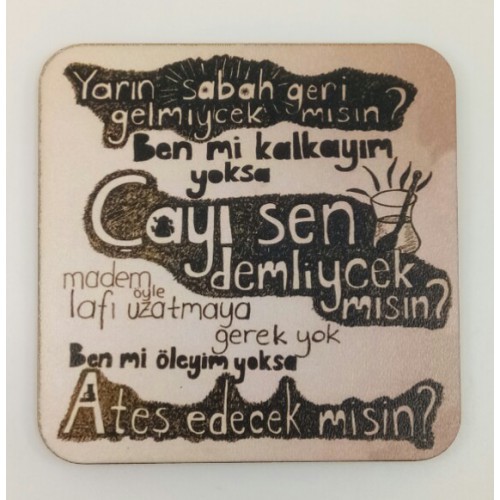 Yarın sabah geri
gelmiycek misin?
Ben mi kalkayım
yoksa
Çayı sen
demliycek
misin?
madem
öyle
lafı uzatmaya
gerek yok
Ben mi öleyim yoksa
Ateş edecek misin?